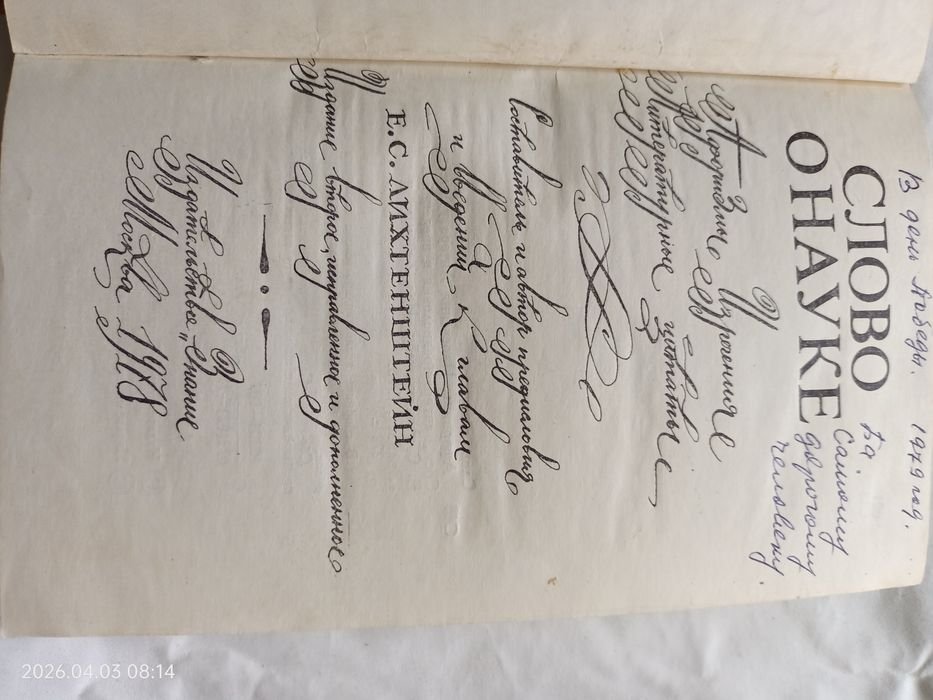 В день Победы. 1979 год.
СЛОВО
О НАУКЕ
Самому
дорогому
человеку.
Афоризмы Изречения
Литературные цитаты
Составитель и автор предисловия
и введений к главам
Е.С. ЛИХТЕНШТЕЙН
Издание второе, исправленное и дополненное
Издательство „Знание"
Москва 1978
2026.04.03 08:14